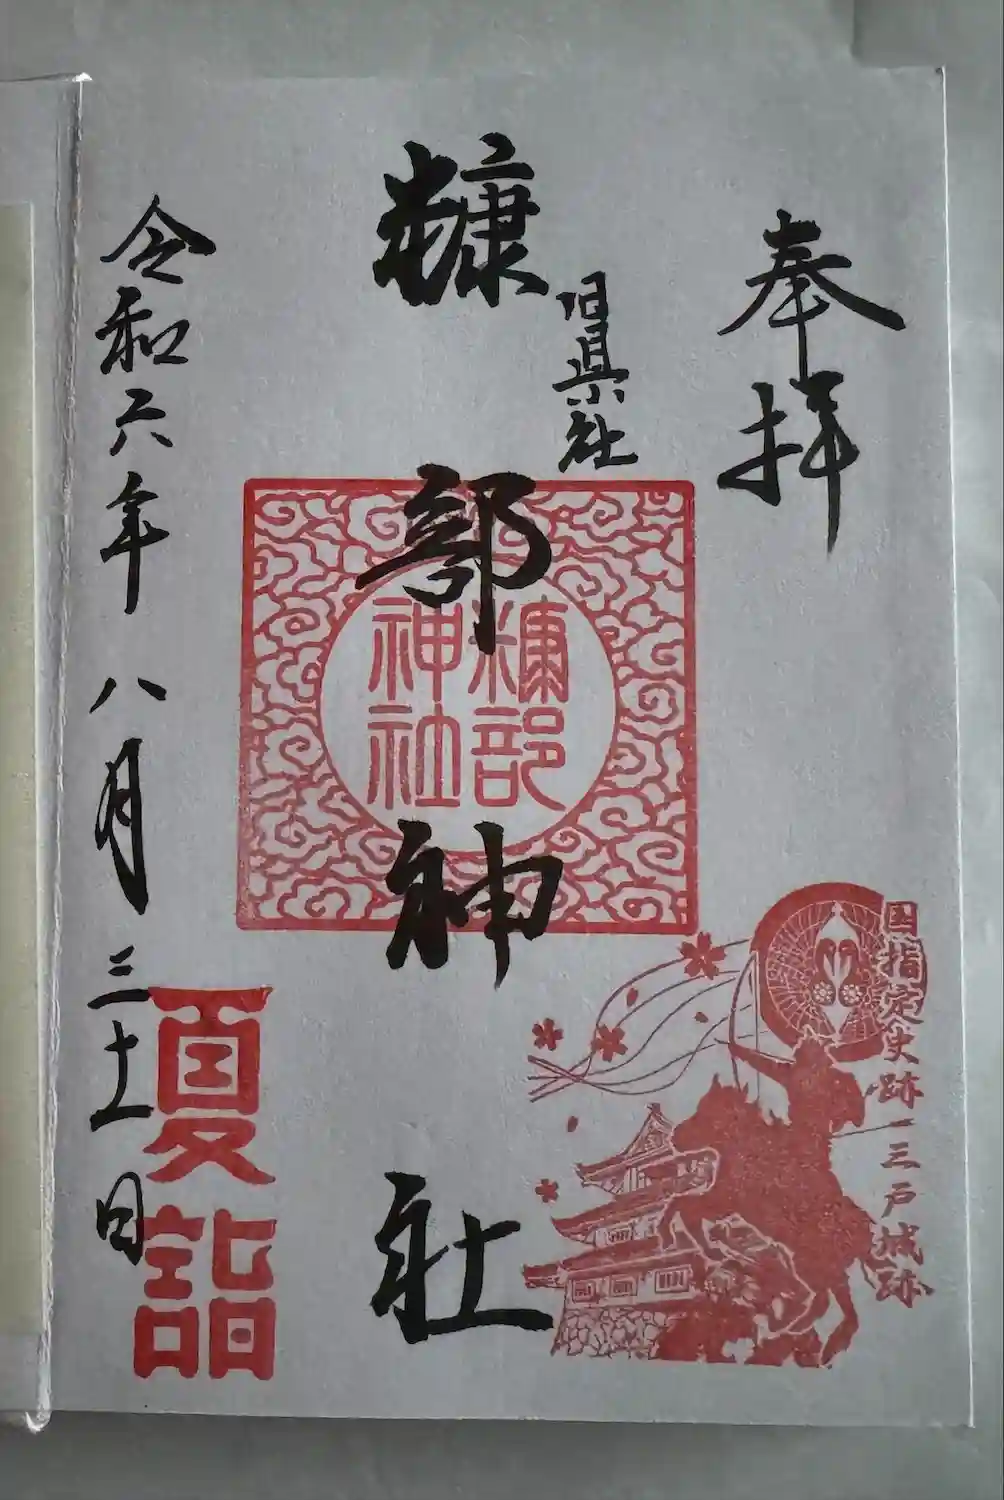 奉拝
旧県社
糠部神社
糠部
神社
国指定史跡 三戸城跡
令和六年 八月 三十一日
夏詣